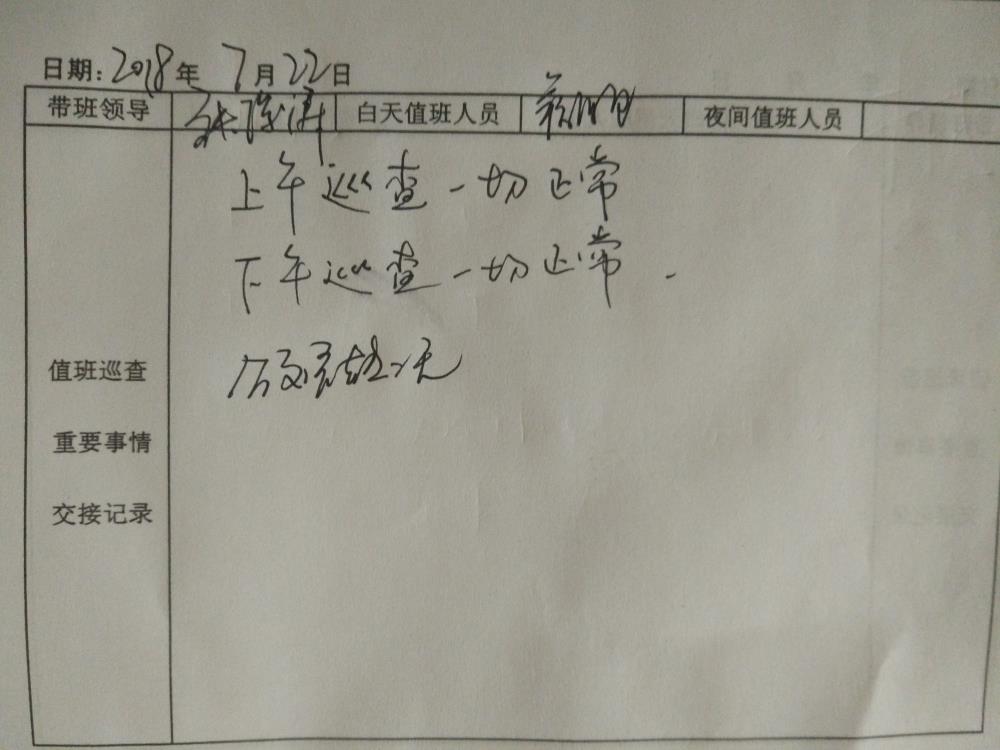 日期:2018年7月22日
带班领导 张 涛 白天值班人员 夜间值班人员
上午巡查一切正常
下午巡查一切正常.
值班巡查
重要事情
交接记录